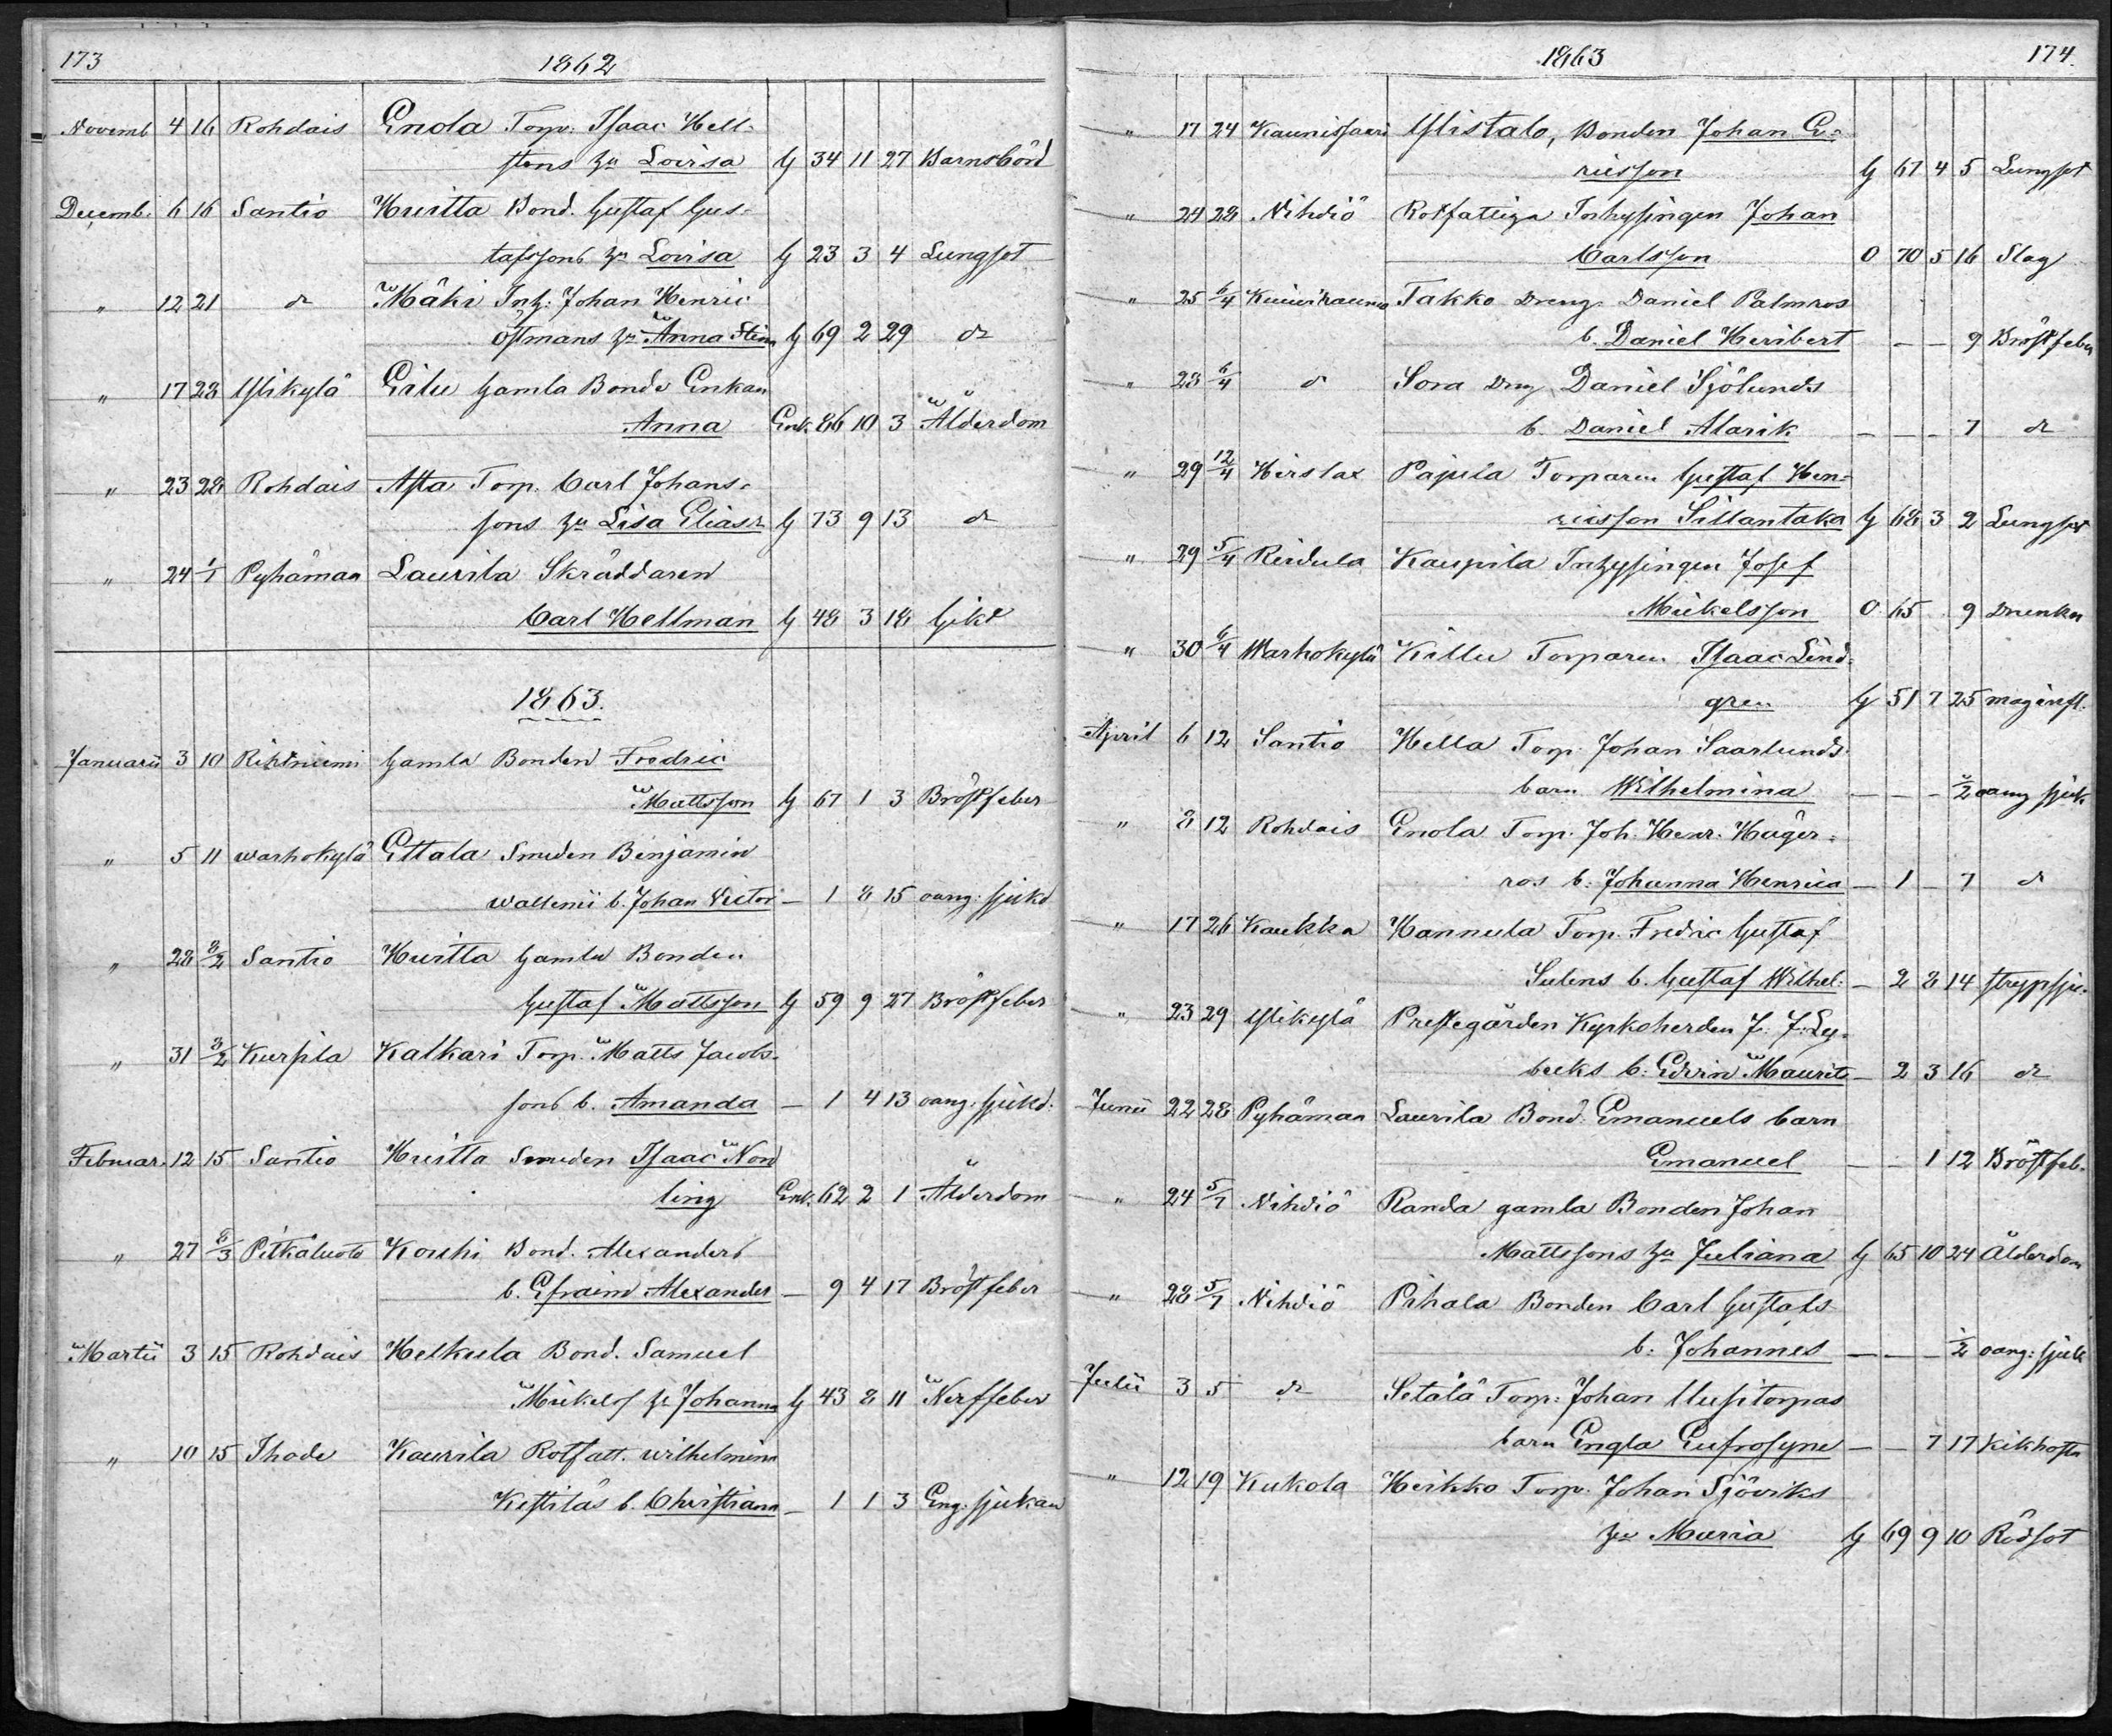 173
1862
Novemb 4 16 Rohdais Enola Torp. Isaac Hell-
stens hu Lovisa G 34 11 27 Barnsbörd
Decemb. 6 16 Santio Huitta Bond. Gustaf Gus-
tafssons hu Lovisa G 23 3 4 Lungsot
" 12 21 do Mäki Inh: Johan Henric
Östmans hu Anna Stina G 69 2 29 do
" 17 28 Ylikylä Eilu Gamla Bonde Enkan
Anna Enk. 86 10 3 Ålderdom
" 23 28 Rohdais Asta Torp. Carl Johans-
sons hu Lisa Eliasd G 73 9 13 do
" 24 1/1 Pyhämaa Laurila Skräddaren
Carl Hellman G 48 3 18 Gikt
1863.
Januarii 3 10 Rihtniemi Gamla Bonden Fredric
Mattsson G 67 1 3 Bröstfeber
" 5 11 Warhokylä Ettala Smeden Benjamin
Wallenii b. Johan Victor — 1 8 15 oang: sjukd
" 28 8/2 Santio Huitta Gamla Bonden
Gustaf Mattsson G 59 9 27 Bröstfeber
" 31 8/2 Kurjila Kalkari Torp. Matts Jacobs-
sons b. Amanda — 1 4 13 oang. sjukd.
Februar. 12 15 Santio Huitta Smeden Isaac Nord
ling Enk. 62 2 1 Ålderdom
" 27 8/3 Pitkäluoto Kouhi Bond. Alexanders
b. Efraim Alexander — 9 4 17 Bröstfeber
Martii 3 15 Rohdais Helkula Bond. Samuel
Mickelss hu Johanna G 43 8 11 Nerffeber
" 10 15 Ihode Kaurila Rotfatt. Wilhelmina
Kestiläs b. Christiana — 1 1 3 Eng. sjukan
1863
174.
" 17 24 Kaunissaari Ylistalo, Bonden Johan E-
ricsson G 67 4 5 Lungsot
" 24 28 Nihdiö Rotfattiga Inhysingen Johan
Carlsson O 70 5 16 Slag
" 25 6/4 Takko Dreng. Daniel Palmros
b. Daniel Heribert — — 9 Bröstfeber
" 28 6/4 do Sora Dng Daniel Sjölunds
b. Daniel Alarik — — — 7 do
" 29 12/4 Hirslax Pajula Torparen Gustaf Hen-
ricsson Sillantaka G 68 3 2 Lungsot
" 29 5/4 Reidula Kaupila Inhysingen Josef
Mickelsson O 65 9 Drunkn
" 30 6/4 Warhokylä Killu Torparen Isaac Lind-
gren G 51 7 25 maginfl.
April 6 12 Santio Hella Torp. Johan Saarlunds
barn Wilhelmina — — — 1/2 oang sjuk
" 8 12 Rohdais Enola Torp. Joh. Henr. Häger-
ros b: Johanna Henrica — 1 — 7 do
" 17 26 Kaukka Hannula Torp. Fredric Gustaf
Sulens b. Gustaf Wilhel: — 2 8 14 strypsju.
" 23 29 Ylikylä Prestegården Kyrkoherden F. F. Ly-
becks b: Edvin Maurits — 2 3 16 do
Junii 22 28 Pyhämaa Laurila Bond. Emanuels barn
Emanuel — — 1 12 Bröstfeb.
" 24 5/7 Nihdiö Randa gamla Bonden Johan
Mattssons hu Juliana G 65 10 24 Ålderdom
" 28 5/7 Nihdiö Pihala Bonden Carl Gustafs
b: Johannes — — — 1/2 oang: sjuk
Julii 3 5 do Setälä Torp: Johan Uusitorpas
barn Engla Eufrosyne — — 7 17 Kikhosta
" 12 19 Kukola Heikko Torp. Johan Sjöviks
hu Maria G 69 9 10 Rödsot